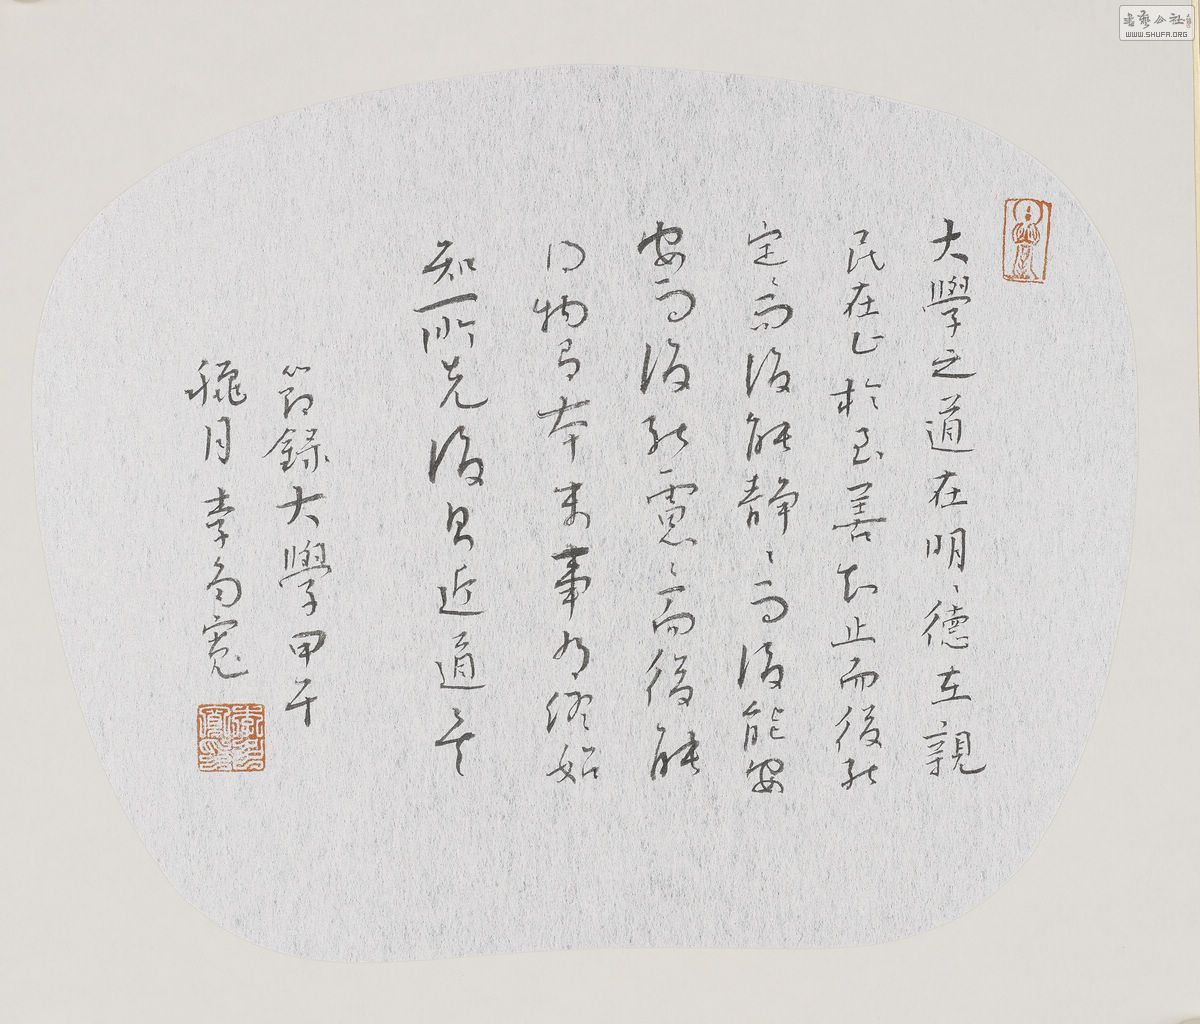 大學之道在明〻德在親
民在止於至善知止而後能
定〻而後能静〻而後能安
安而後能慮〻而後能
得物有本末事有終始
知所先後則近道矣
節錄大學甲午
穐月李寬
書藝公社
WWW.SHUFA.ORG